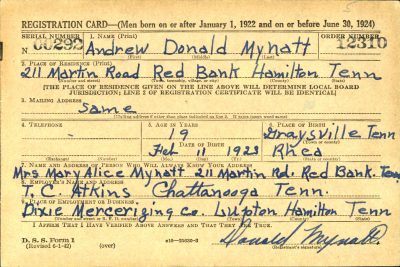 REGISTRATION CARD—(Men born on or after January 1, 1922 and on or before June 30, 1924)
SERIAL NUMBER 1. NAME (Print) ORDER NUMBER
N 00292 Andrew Donald Mynatt 12310
2. PLACE OF RESIDENCE (Print)
211 Martin Road Red Bank Hamilton Tenn
[THE PLACE OF RESIDENCE GIVEN ON THE LINE ABOVE WILL DETERMINE LOCAL BOARD
JURISDICTION; LINE 2 OF REGISTRATION CERTIFICATE WILL BE IDENTICAL]
3. MAILING ADDRESS
Same
4. TELEPHONE 5. AGE IN YEARS 6. PLACE OF BIRTH
19 Graysville Tenn
DATE OF BIRTH
Feb 11 1923 Rhea
7. NAME AND ADDRESS OF PERSON WHO WILL ALWAYS KNOW YOUR ADDRESS
Mrs Mary Alice Mynatt 211 Martin Rd. Red Bank. Tenn
8. EMPLOYER'S NAME AND ADDRESS
T. C. Atkins Chattanooga Tenn.
9. PLACE OF EMPLOYMENT OR BUSINESS
Dixie Mercerizing Co. Lupton Hamilton Tenn
I AFFIRM THAT I HAVE VERIFIED ABOVE ANSWERS AND THAT THEY ARE TRUE.
D. S. S. Form 1
(Revised 6-1-42) (over)
Donald Mynatt
(Registrant's signature)